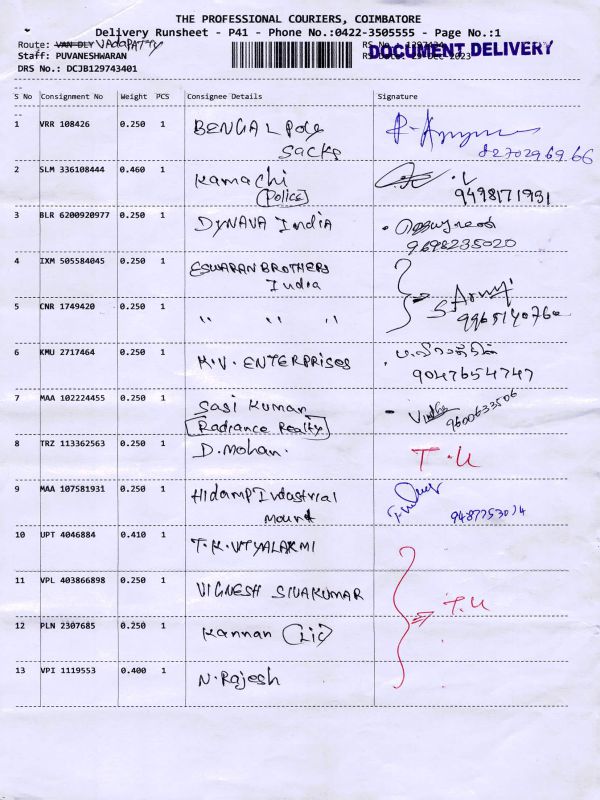 THE PROFESSIONAL COURIERS, COIMBATORE
Delivery Runsheet - P41 - Phone No.:0422-3505555 - Page No.:1
Route: VAN DLY VADAPATTY
DOCUMENT DELIVERY
Staff: PUVANESHWARAN
DRS No.: DCJB129743401
S No Consignment No Weight PCS Consignee Details Signature
1 VRR 108426 0.250 1 BENGAL Pole
Sacks
8270296966
2 SLM 336108444 0.460 1 Kamachi
(Police)
9498171991
3 BLR 6200920977 0.250 1 DYNAVA India
9698235020
4 IXM 505584045 0.250 1 ESWARAN BROTHERS
India
5 CNR 1749420 0.250 1 " " "
6 KMU 2717464 0.250 1 K.V. ENTERPRISES
9047654747
7 MAA 102224455 0.250 1 Sasi Kumar
Radiance Realty
9600633506
8 TRZ 113362563 0.250 1 D.Mohan. T.U
9 MAA 107581931 0.250 1 Hidamp Industrial
Mount
9487753014
10 UPT 4046884 0.410 1 T.K.VIYALAKMI
11 VPL 403866898 0.250 1 VIGNESH SIVAKUMAR T.U
12 PLN 2307685 0.250 1 Kannan (Lic)
13 VPI 1119553 0.400 1 N.Rajesh